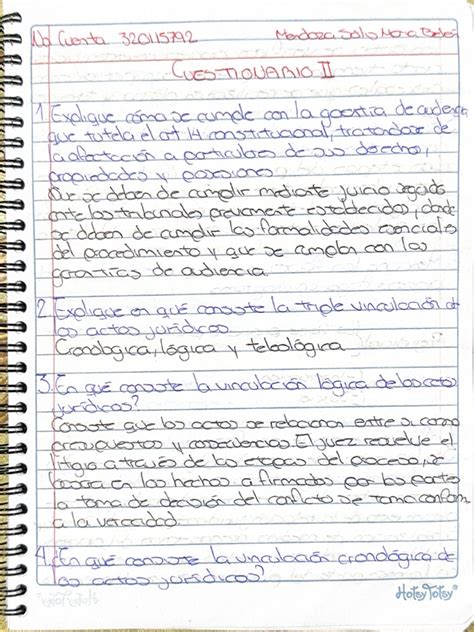 No Cuenta 320115792 Mendoza Solis Maria Belén
CUESTIONARIO II
1. Explique cómo se cumple con la garantía de audiencia
que tutela el art 14 constitucional, tratandose de
la afectación a particulares de sus derechos,
propiedades y posesiones.
Que se deben de cumplir mediante juicio seguido
ante los tribunales previamente establecidos, donde
se deben de cumplir las formalidades esenciales
del procedimiento y que se cumplan con las
garantias de audiencia
2. Explique en qué consiste la triple vinculación de
los actos jurídicos
Cronológica, lógica y teleológica
3. En qué consiste la vinculación lógica de los actos
jurídicos?
Consiste que los actos se relacionan entre si como
presupuestos y consecuencias. El juez resuelve el
litigio a través de las etapas del proceso, se
basara en los hechos afirmados por las partes
la toma de decisión del conflicto se toma conforme
a la veracidad.
4. En qué consiste la vinculación cronológica de
los actos jurídicos?
HotsyTotsy